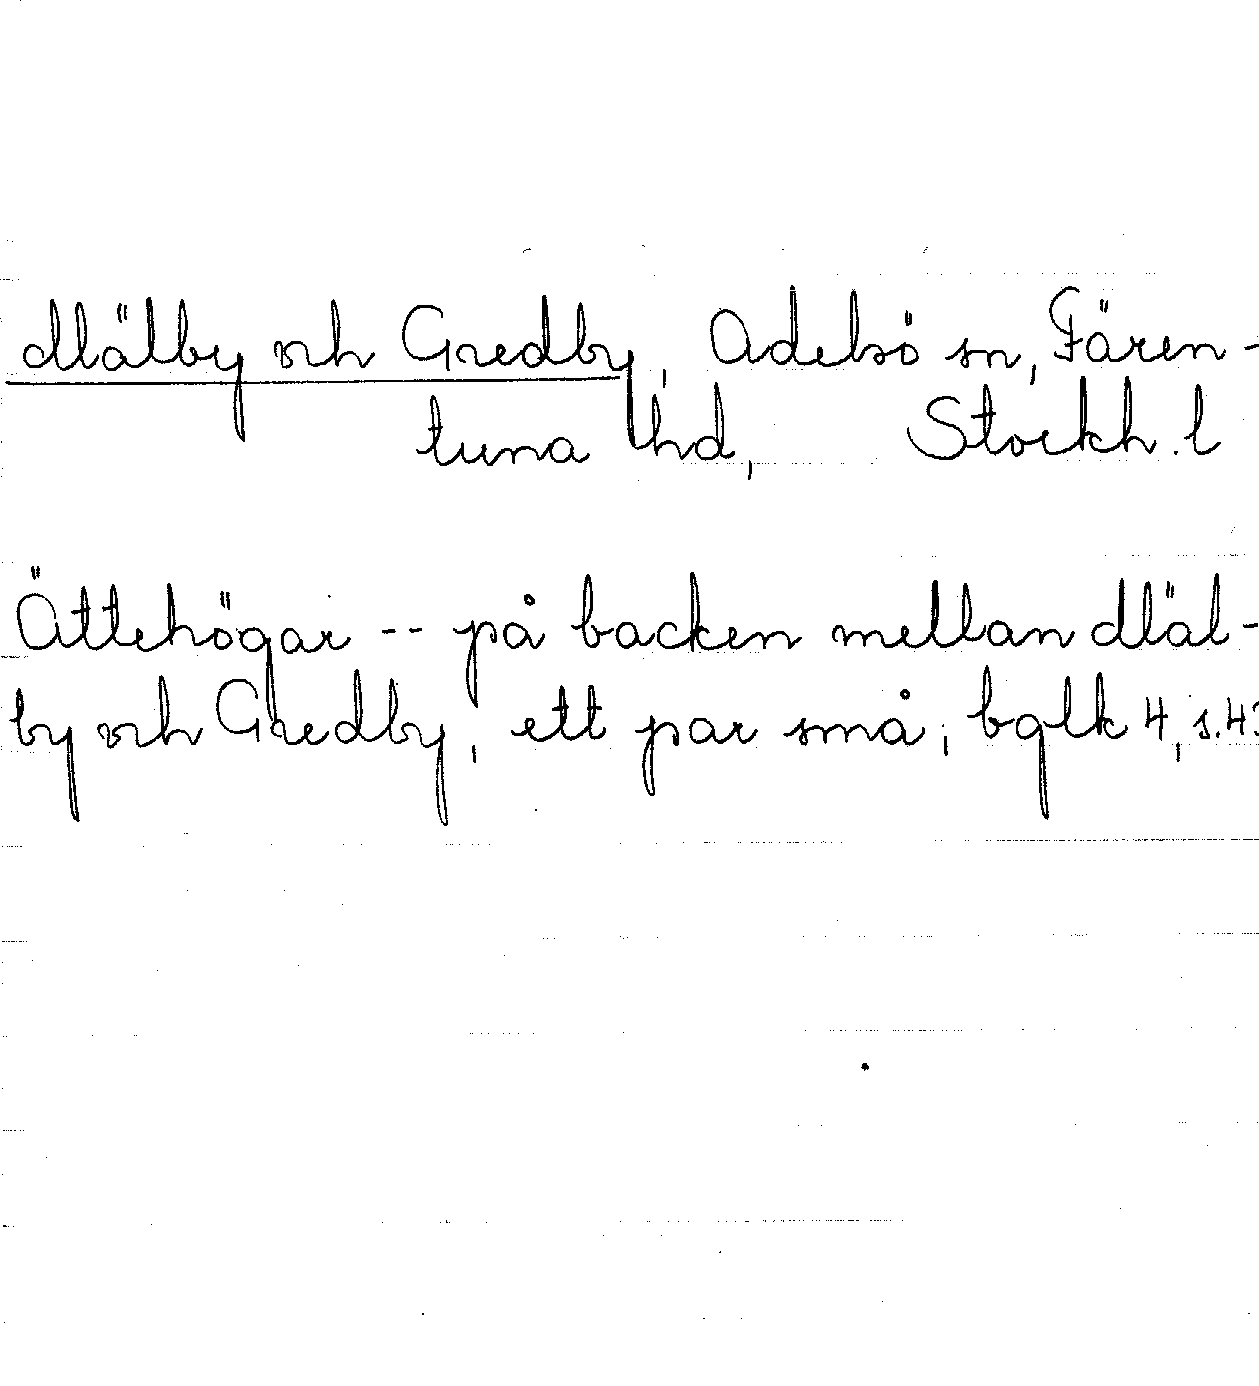 Mälby och Gredby, Adelsö sn, Fären-
tuna hd, Stockh. l
Ättehögar -- på backen mellan Mäl-
by och Gredby, ett par små; bqlk 4, s.43